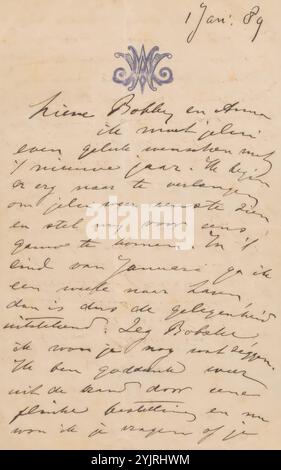 1 Jan: 89
Lieve Bobbey en Anna
ik moet jelui
even geluk wenschen met
't nieuwe jaar. Ik begin
er erg naar te verlangen
om jelui weer eens te zien
en stel my voor eens
gauw te komen. In 't
eind van Januari ga ik
een week naar
dan is dus de gelegenheid
uitstekend. Zeg Bobbke
ik wou je nog wat zeggen.
Ik ben goddank weer
uit de band door eene
flinke bestelling en nu
wou ik je vragen of je
alamy
Image ID: 2YJRHWM
www.alamy.com